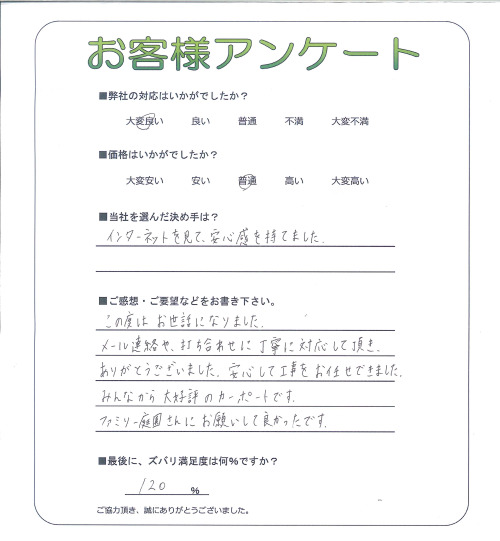 お客様アンケート
■弊社の対応はいかがでしたか?
大変良い 良い 普通 不満 大変不満
■価格はいかがでしたか?
大変安い 安い 普通 高い 大変高い
■当社を選んだ決め手は?
インターネットを見て、安心感を持てました。
■ご感想・ご要望などをお書き下さい。
この度は お世話になりました。
メール連絡や、打ち合わせに丁寧に対応して頂き、
ありがとうございました。安心して工事をお任せできました。
みんなから大好評のカーポートです。
ファミリー庭園さんにお願いして良かったです。
■最後に、ズバリ満足度は何%ですか?
120 %
ご協力頂き、誠にありがとうございました。